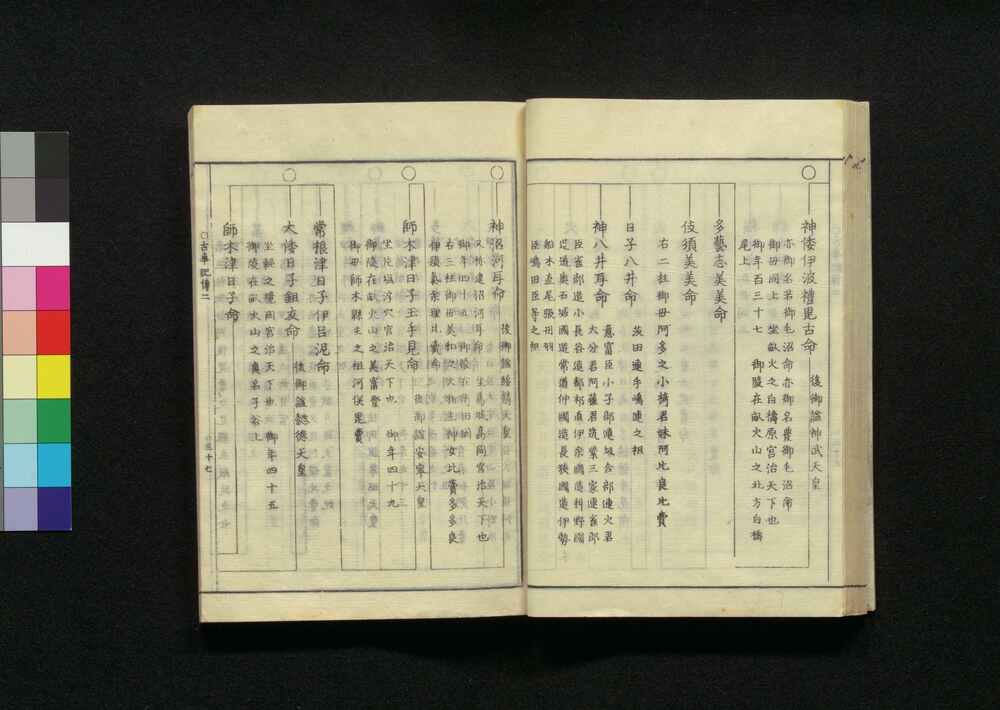 神倭伊波禮毘古命
後御謚神武天皇
亦御名若御毛沼命亦御名豐御毛沼命
御毋同上 坐畝火之白檮原宮治天下也
御年百三十七 御陵在畝火山之北方白檮
尾上
多藝志美美命
伎須美美命
右二柱御毋阿多之小椅君妹阿比良比賣
日子八井命
茨田連手嶋連之祖
神八井耳命
意富臣小子部連坂合部連火君
大分君阿蘇君筑紫三家連雀部
臣雀部造小長谷造都祁直伊余國造科野國
造道奧石城國造常道仲國造長狹國造伊勢
船木直尾張丹羽
臣嶋田臣等之祖
神沼河耳命
後御謚綏靖天皇
又稱建沼河耳命 坐葛城高岡宮治天下也
御年四十五 御陵在衝田岡
右三柱御毋美和之大物主神女比賣多多良
伊須氣余理比賣命
師木津日子玉手見命
後御謚安寧天皇
坐片塩浮穴宮治天下也 御年四十九
御陵在畝火山之美富登
御毋師木縣主之祖河俣毘賣
常根津日子伊呂泥命
大倭日子鉏友命
後御謚懿德天皇
坐輕之境岡宮治天下也 御年四十五
御陵在畝火山之眞名子谷上
師木津日子命
古事記傳二
十七